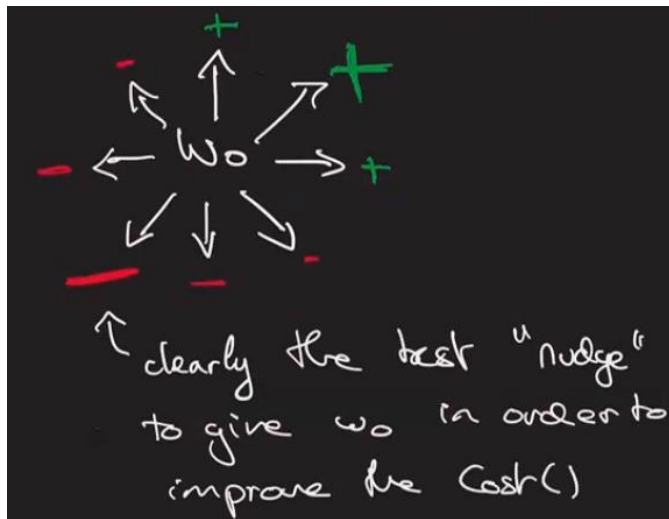 +
- +
Wo
- +
- - -
clearly the best "nudge"
to give wo in order to
improve the Cost()